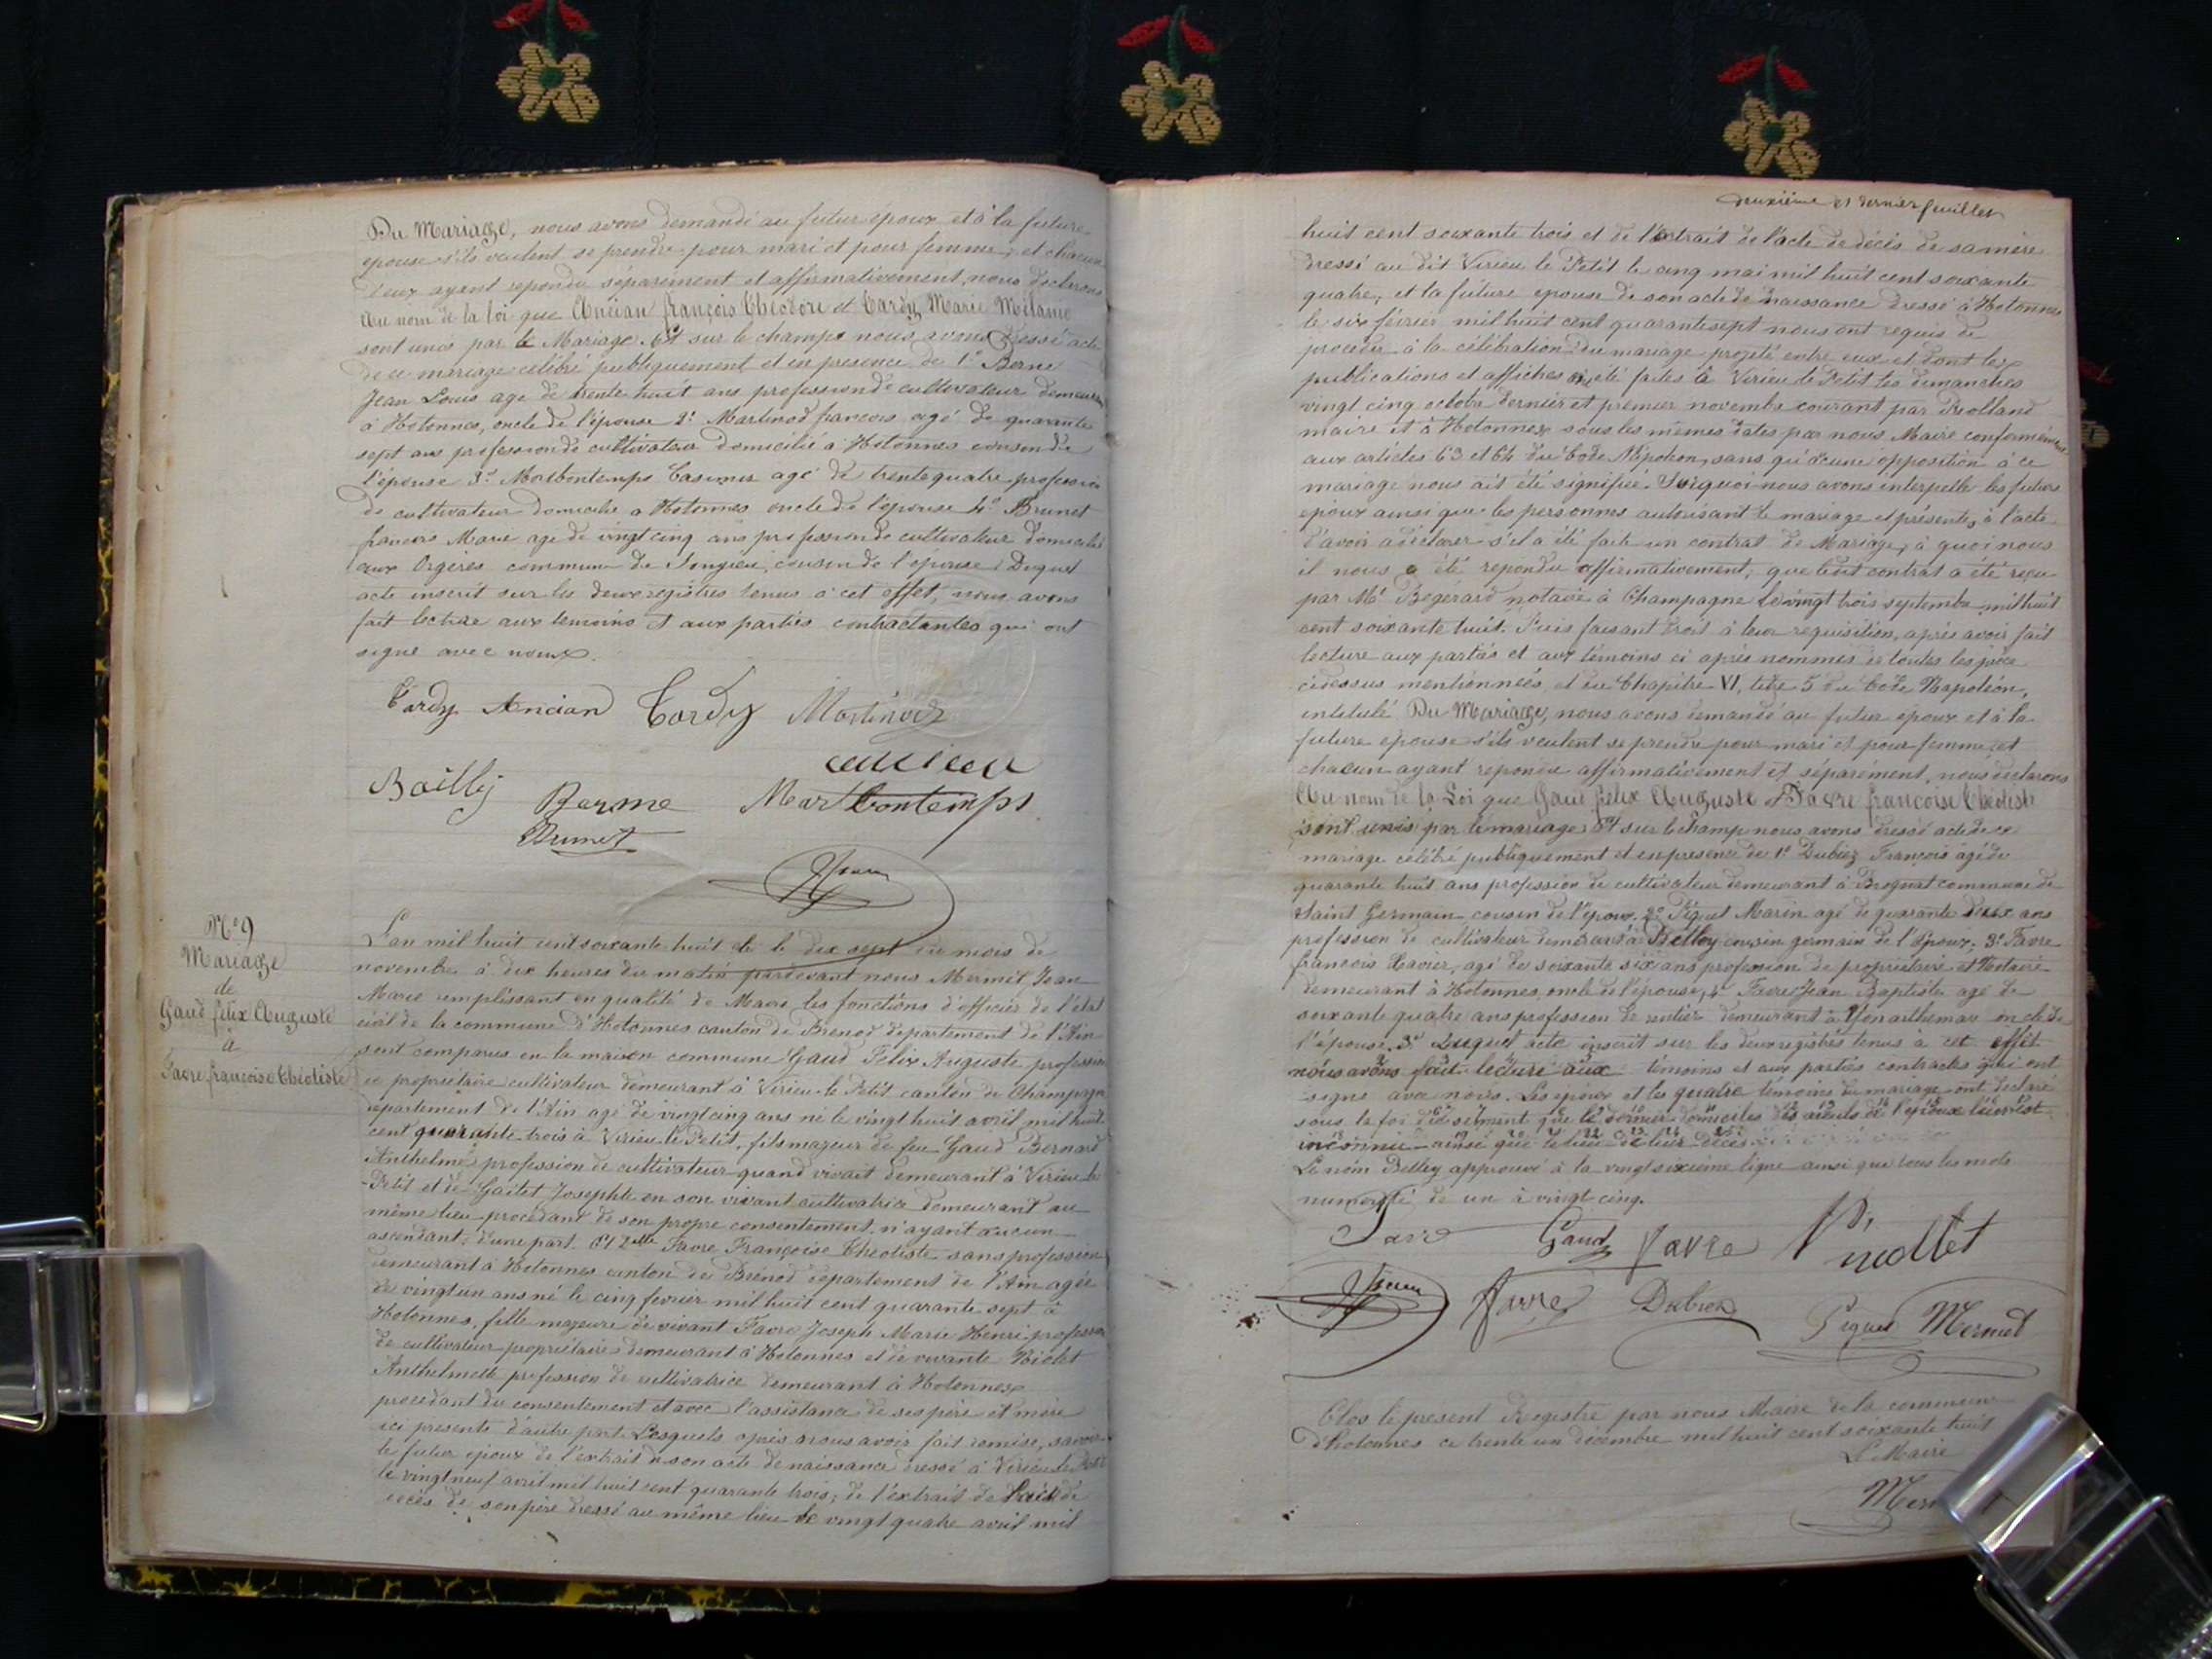 Du Mariage, nous avons demandé au futur époux et à la future
épouse s'ils veulent se prendre pour mari et pour femme, et chacun
d'eux ayant repondu séparément et affirmativement, nous declarons
Au nom de la loi que Ancian françois Théodore et Tardy Marie Mélanie
sont unis par le Mariage. Et sur le champs nous avons dressé acte
de ce mariage célébré publiquement et en presence de 1° Berne
Jean Louis age de trente huit ans profession de cultivateur demeurant
à Hotonnes, oncle de l'épouse 2° Martinod francois agé de quarante
sept ans profession de cultivateur domicilié à Hotonnes cousin de
l'épouse 3° Malbontemps Casimir agé de trente quatre profession
de cultivateur domicilie a Hotonnes oncle de l'épouse 4° Brunet
francois Marie age de vingt cinq ans profession de cultivateur domicilié
aux Orgères commune de Songieu, cousin de l'épouse. Duquel
acte inscrit sur les deux registres tenus à cet effet, nous avons
fait lecture aux temoins et aux parties contractantes qui ont
signé avec nous.
Tardy Ancian Tardy Martinod
ancian
Bailly Berne Malbontemps
Brunet
N° 9
Mariage
de
Gaud félix Auguste
à
Favre francoise Théotiste
L'an mil huit cent soixante huit et le dix sept du mois de
novembre à dix heures du matin pardevant nous Mermet, Jean
Marie remplissant en qualité de Maire les fonctions d'officier de l'état
civil de la commune d'Hotonnes canton de Brénod departement de l'Ain
sont comparus en la maison commune Gaud Félix Auguste profession
de propriétaire cultivateur demeurant à Virieu-le Petit canton de Champagne
département de l'Ain agé de vingt cinq ans né le vingt huit avril mil huit
cent quarante trois à Virieu-le Petit, fils majeur de feu Gaud Bernard
Anthelme profession de cultivateur quand vivait demeurant à Virieu le
Petit et de Gaitet Josephte en son vivant cultivatrice demeurant au
même lieu procédant de son propre consentement, n'ayant aucun
ascendant, d'une part. Et Delle Favre Françoise Théotiste sans profession
demeurant à Hotonnes canton de Brénod departement de l'Ain agée
de vingt un ans né le cinq fevrier mil huit cent quarante sept à
Hotonnes, fille majeure de vivant Favre Joseph Marie Henri profession
de cultivateur propriétaire demeurant à Hotonnes et de vivante Niolet
Anthelmette profession de cultivatrice demeurant à Hotonnes
procédant du consentement et avec l'assistance de ses père et mère
ici presents d'autre part. Lesquels après nous avoir fait remise, savoir
le futur époux de l'extrait de son acte de naissance dressé à Virieu le Petit
le vingt neuf avril mil huit cent quarante trois; de l'extrait de l'acte de
décès de son père dressé au même lieu le vingt quatre avril mil
deuxième et dernier feuillet
huit cent soixante trois et de l'extrait de l'acte de décès de sa mère
dressé au dit Virieu le Petit le cinq mai mil huit cent soixante
quatre, et la future epouse de son acte de naissance dressé à Hotonnes
le six février mil huit cent quarante sept nous ont requis de
proceder à la célébration du mariage projeté entre eux et dont les
publications et affiches ont été faites à Virieu le Petit les dimanches
vingt cinq octobre dernier et premier novembre courant par Rolland
maire et à Hotonnes sous les mêmes dates par nous Maire conformément
aux articles 63 et 64 du Code Népoléon, sans qu'aucune opposition à ce
mariage nous ait été signifiée. Surquoi nous avons interpellé les futurs
époux ainsi que les personnes autorisant le mariage et présentes à l'acte
d'avoir à déclarer s'il a été fait un contrat de Mariage, à quoi nous
il nous a été repondu affirmativement, que ledit contrat a été reçu
par Me Begerard notaire à Champagne le vingt trois septembre mil huit
cent soixante huit. Puis faisant droit à leur requisition, après avoir fait
lecture aux parties et aux témoins ci après nommés de toutes les pièces
cidessus mentionnées, et du Chapitre VI, titre 5 du Code Napoléon,
intitulé Du Mariage, nous avons demandé au futur époux et à la
future épouse s'ils veulent se prendre pour mari et pour femme, et
chacun ayant repondu affirmativement et séparément, nous declarons
Au nom de la Loi que Gaud félix Auguste et Favre françoise Théotiste
sont unis par le mariage. Et sur le champ nous avons dressé acte de ce
mariage célébré publiquement et en presence de 1° Dubiez François âgé de
quarante huit ans profession de cultivateur demeurant à Brognat commune de
Saint Germain cousin de l'époux. 2° Piguet Marin agé de quarante deux ans
profession de cultivateur demeurant à Belley cousin germain de l'époux. 3° Favre
francois Xavier, agé de soixante six ans profession de propriétaire et Notaire
demeurant à Hotonnes, oncle de l'épouse, 4° Favre Jean Baptiste agé de
soixante quatre ans profession de rentier demeurant à Yon arthemar oncle de
l'épouse. 3° Duquel acte inscrit sur les deux registres tenus à cet effet
nous avons fait lecture aux témoins et aux parties contractes qui ont
signé avec nous. Les époux et les quatre témoins du mariage ont declaré
sous la foi du serment que le dernier domiciles des aïeuls de l'époux leur est
inconnu ainsi que le lieu de leur décès.
Le nom Belley approuvé à la vingt sixième ligne ainsi que tous les mots
numéroté de un à vingt cinq.
Favre Gaud favre Niollet
Favre Dubiez Piguet Mermet
Clos le present Registre par nous Maire de la commune
d'hotonnes ce trente un décembre mil huit cent soixante huit
Le Maire